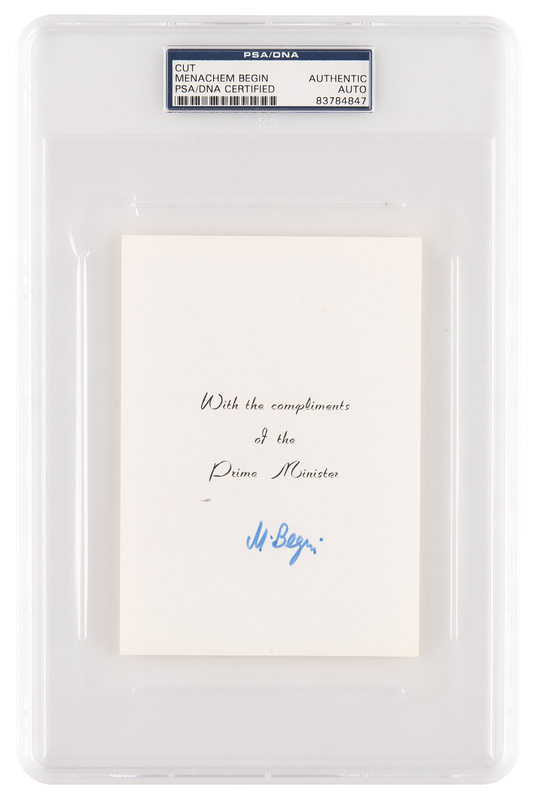 PSA/DNA
CUT
MENACHEM BEGIN AUTHENTIC
PSA/DNA CERTIFIED AUTO
83784847
With the compliments
of the
Prime Minister
M. Begin